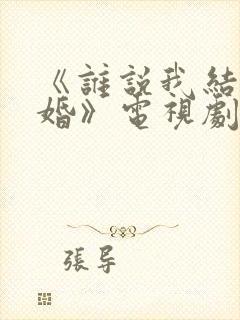 《誰説我結
婚》電視劇
張导